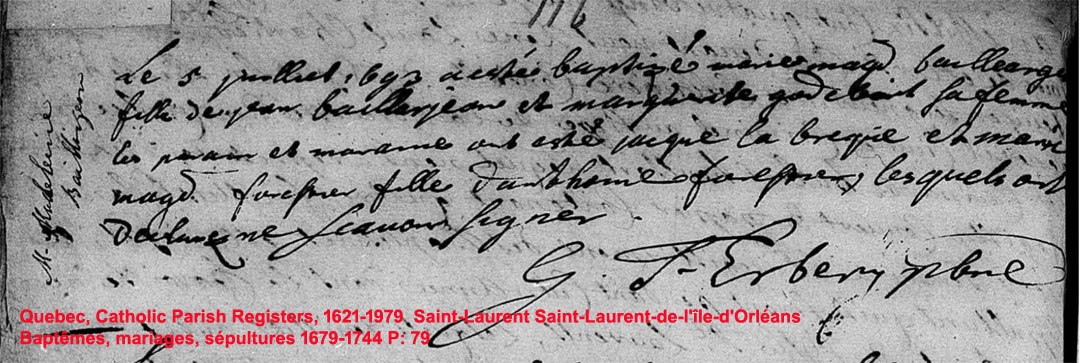 Le 5 juilliet 1693 a esté baptizé marie magd baillearge
fille de jean baillarjean et marguerite godebout sa femme
les parain et maraine ont esté jacque la breqie et marie
magd forestier fille d'anthoine forestier, lesquels ont
declare ne scauoir signèr.
G. T. Erbery pbre
M. Madeleine
Baillargeon
Quebec, Catholic Parish Registers, 1621-1979, Saint-Laurent Saint-Laurent-de-l'île-d'Orléans
Baptêmes, mariages, sépultures 1679-1744 P: 79